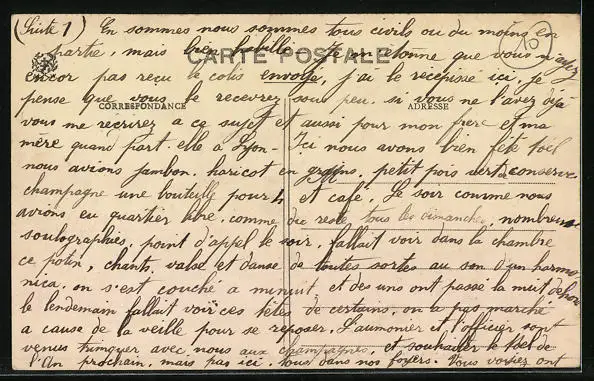 (Suite 1) En sommes nous sommes tous civils ou du moins en
partie, mais bien habillé. Je m'etonne que vous n'ayez
CARTE POSTALE
encor pas reçu le colis envoyé, j'ai le recepissé ici, je
pense que vous le recevrez sous peu. si vous ne l'avez deja
CORRESPONDANCE ADRESSE
vous me récrirez a ce sujet et aussi pour mon frere et ma
mère quand part-elle a Lyon- Ici nous avons bien fêté
nous avions jambon, haricot en grains, petit pois vert conserve
champagne une bouteille pour 4 et café. Le soir comme nous
avions eu quartier libre, comme du reste tous les dimanches, nombreuse
soulographies, point d'appel le soir, fallait voir dans la chambre
ce potin, chants, valse et danse de toutes sortes au son d'un harmo
nica, on s'est couché a minuit et des uns ont passé la nuit dehors
le lendemain fallait voir ces têtes de certains, on a pas marché
a cause de la veille pour se reposer. L'aumonier et l'officier sont
venus trinquer avec nous aux champagnes, et souhaiter le bel de
l'An prochain, mais pas ici, tous dans nos foyers. Vous voyiez ont